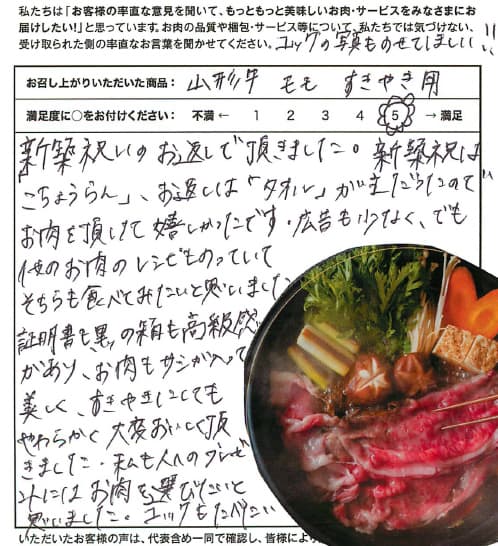 私たちは「お客様の率直な意見を聞いて、もっともっと美味しいお肉・サービスをみなさまにお
届けしたい!」と思っています。お肉の品質や梱包・サービス等について、私たちでは気づけない、
受け取られた側の率直なお言葉を聞かせてください。
コックの写真ものせてほしい!!
お召し上がりいただいた商品: 山形牛 モモ すきやき用
満足度に○をお付けください: 不満 ← 1 2 3 4 5 → 満足
新築祝いのお返しで頂きました。新築祝は
「こちょうらん」、お返しは「タオル」が主だったので
お肉を頂けて嬉しかったです。広告も少なく、でも
他のお肉のレシピものっていて
そちらも食べてみたいと思いました
証明書も黒の箱も高級感
があり、お肉もサシが入って
美しく、すきやきにしても
やわらかく大変おいしく頂
きました。私も人へのプレゼ
ントにはお肉を選びたいと
思いました。コックもたべたい
いただいたお客様の声は、代表含め一同で確認し、皆様により